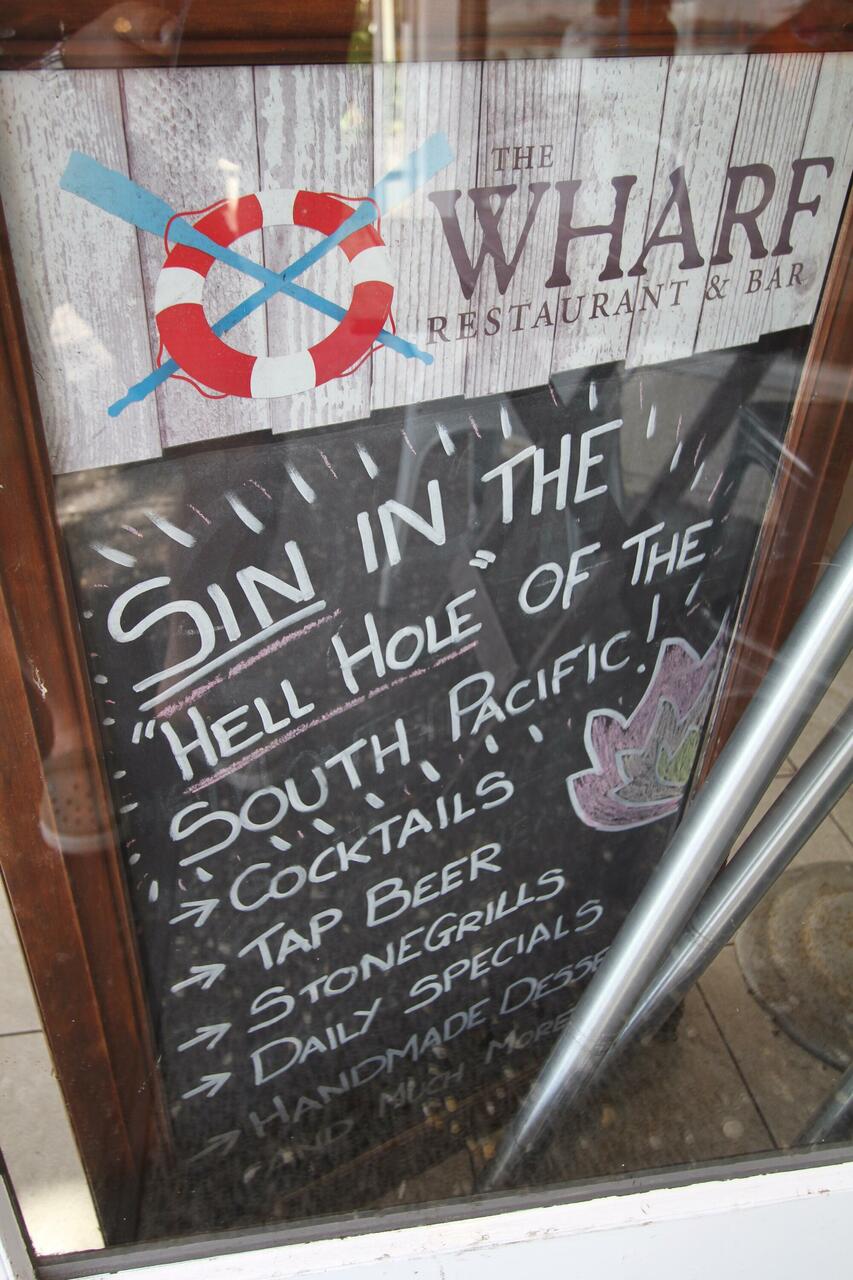 THE
WHARF
RESTAURANT & BAR
SIN IN THE
"HELL HOLE" OF THE
SOUTH PACIFIC!
→ COCKTAILS
→ TAP BEER
→ STONEGRILLS
→ DAILY SPECIALS
→ HANDMADE DESSE
AND MUCH MORE